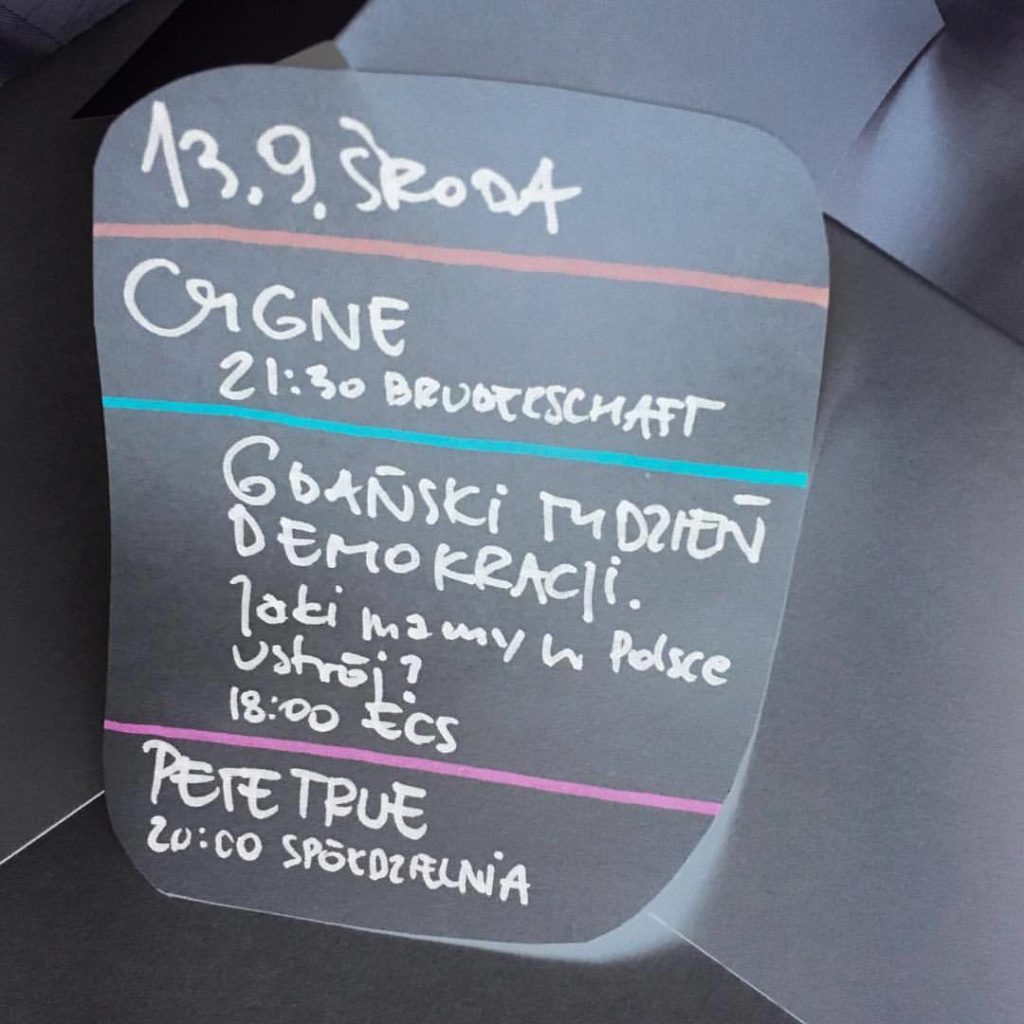 13.9. ŚRODA
CYGNE
21:30 BRUDERSCHAFT
GDAŃSKI TYDZIEŃ
DEMOKRACJI.
Jaki mamy w Polsce
ustrój?
18:00 ECS
PETE TRUE
20:00 SPÓŁDZIELNIA